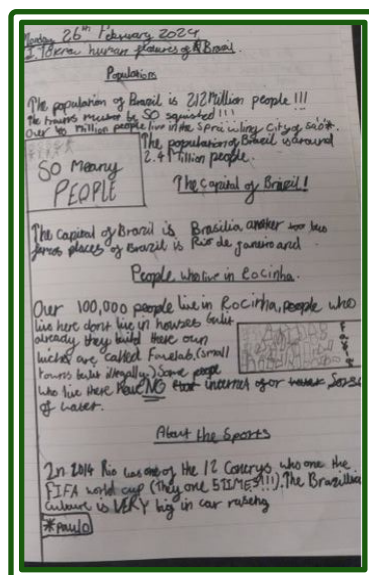 Monday 26th February 2024
I. To know human features of Brazil.
Population
The population of Brazil is 212 Million people !!!
the trains must be SO squished !!!
Over 40 million people live in the sprawling City of são*.
The population of Brazil is around
2.4 Million people.
SO Meany
PEOPLE
The capital of Brazil!
The capital of Brazil is Brasília another two
places of Brazil is Rio de janeiro and
People who live in Rocinha.
Over 100,000 people live in Rocinha, people who
live here dont live in houses built
already they build there own
which are called Favelas, (small
towns built illegally.) Some people
who live there have NO internet or
of water.
About the Sports
In 2014 Rio was one of the 12 who one the
FIFA world cup (They one 5 TIMES!!!). The Brazillian
culture is VERY big in car raseng
*paulo